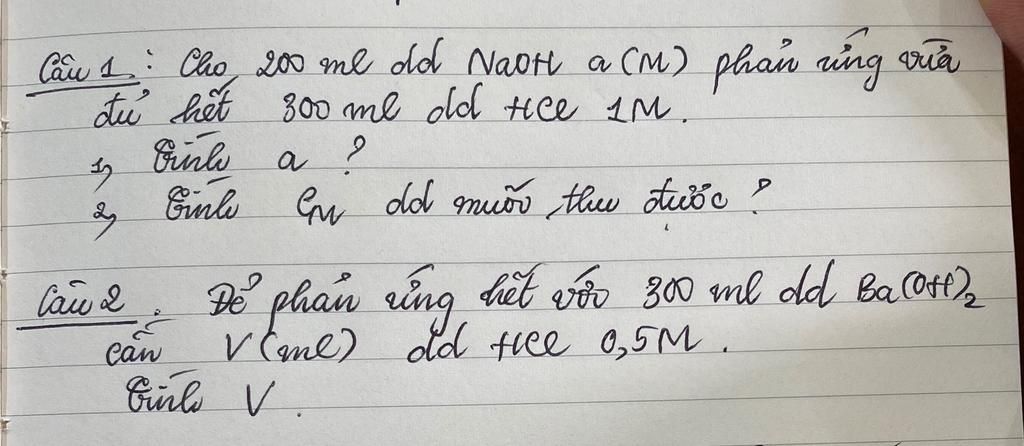 Câu 1: Cho 200 ml dd NaOH a(M) phản ứng vừa
đủ hết 300 ml dd HCl 1M.
1, Tính a ?
2, Tính CM dd muối thu được ?
Câu 2. Để phản ứng hết với 300 ml dd Ba(OH)2
cần V(ml) dd HCl 0,5M.
Tính V.